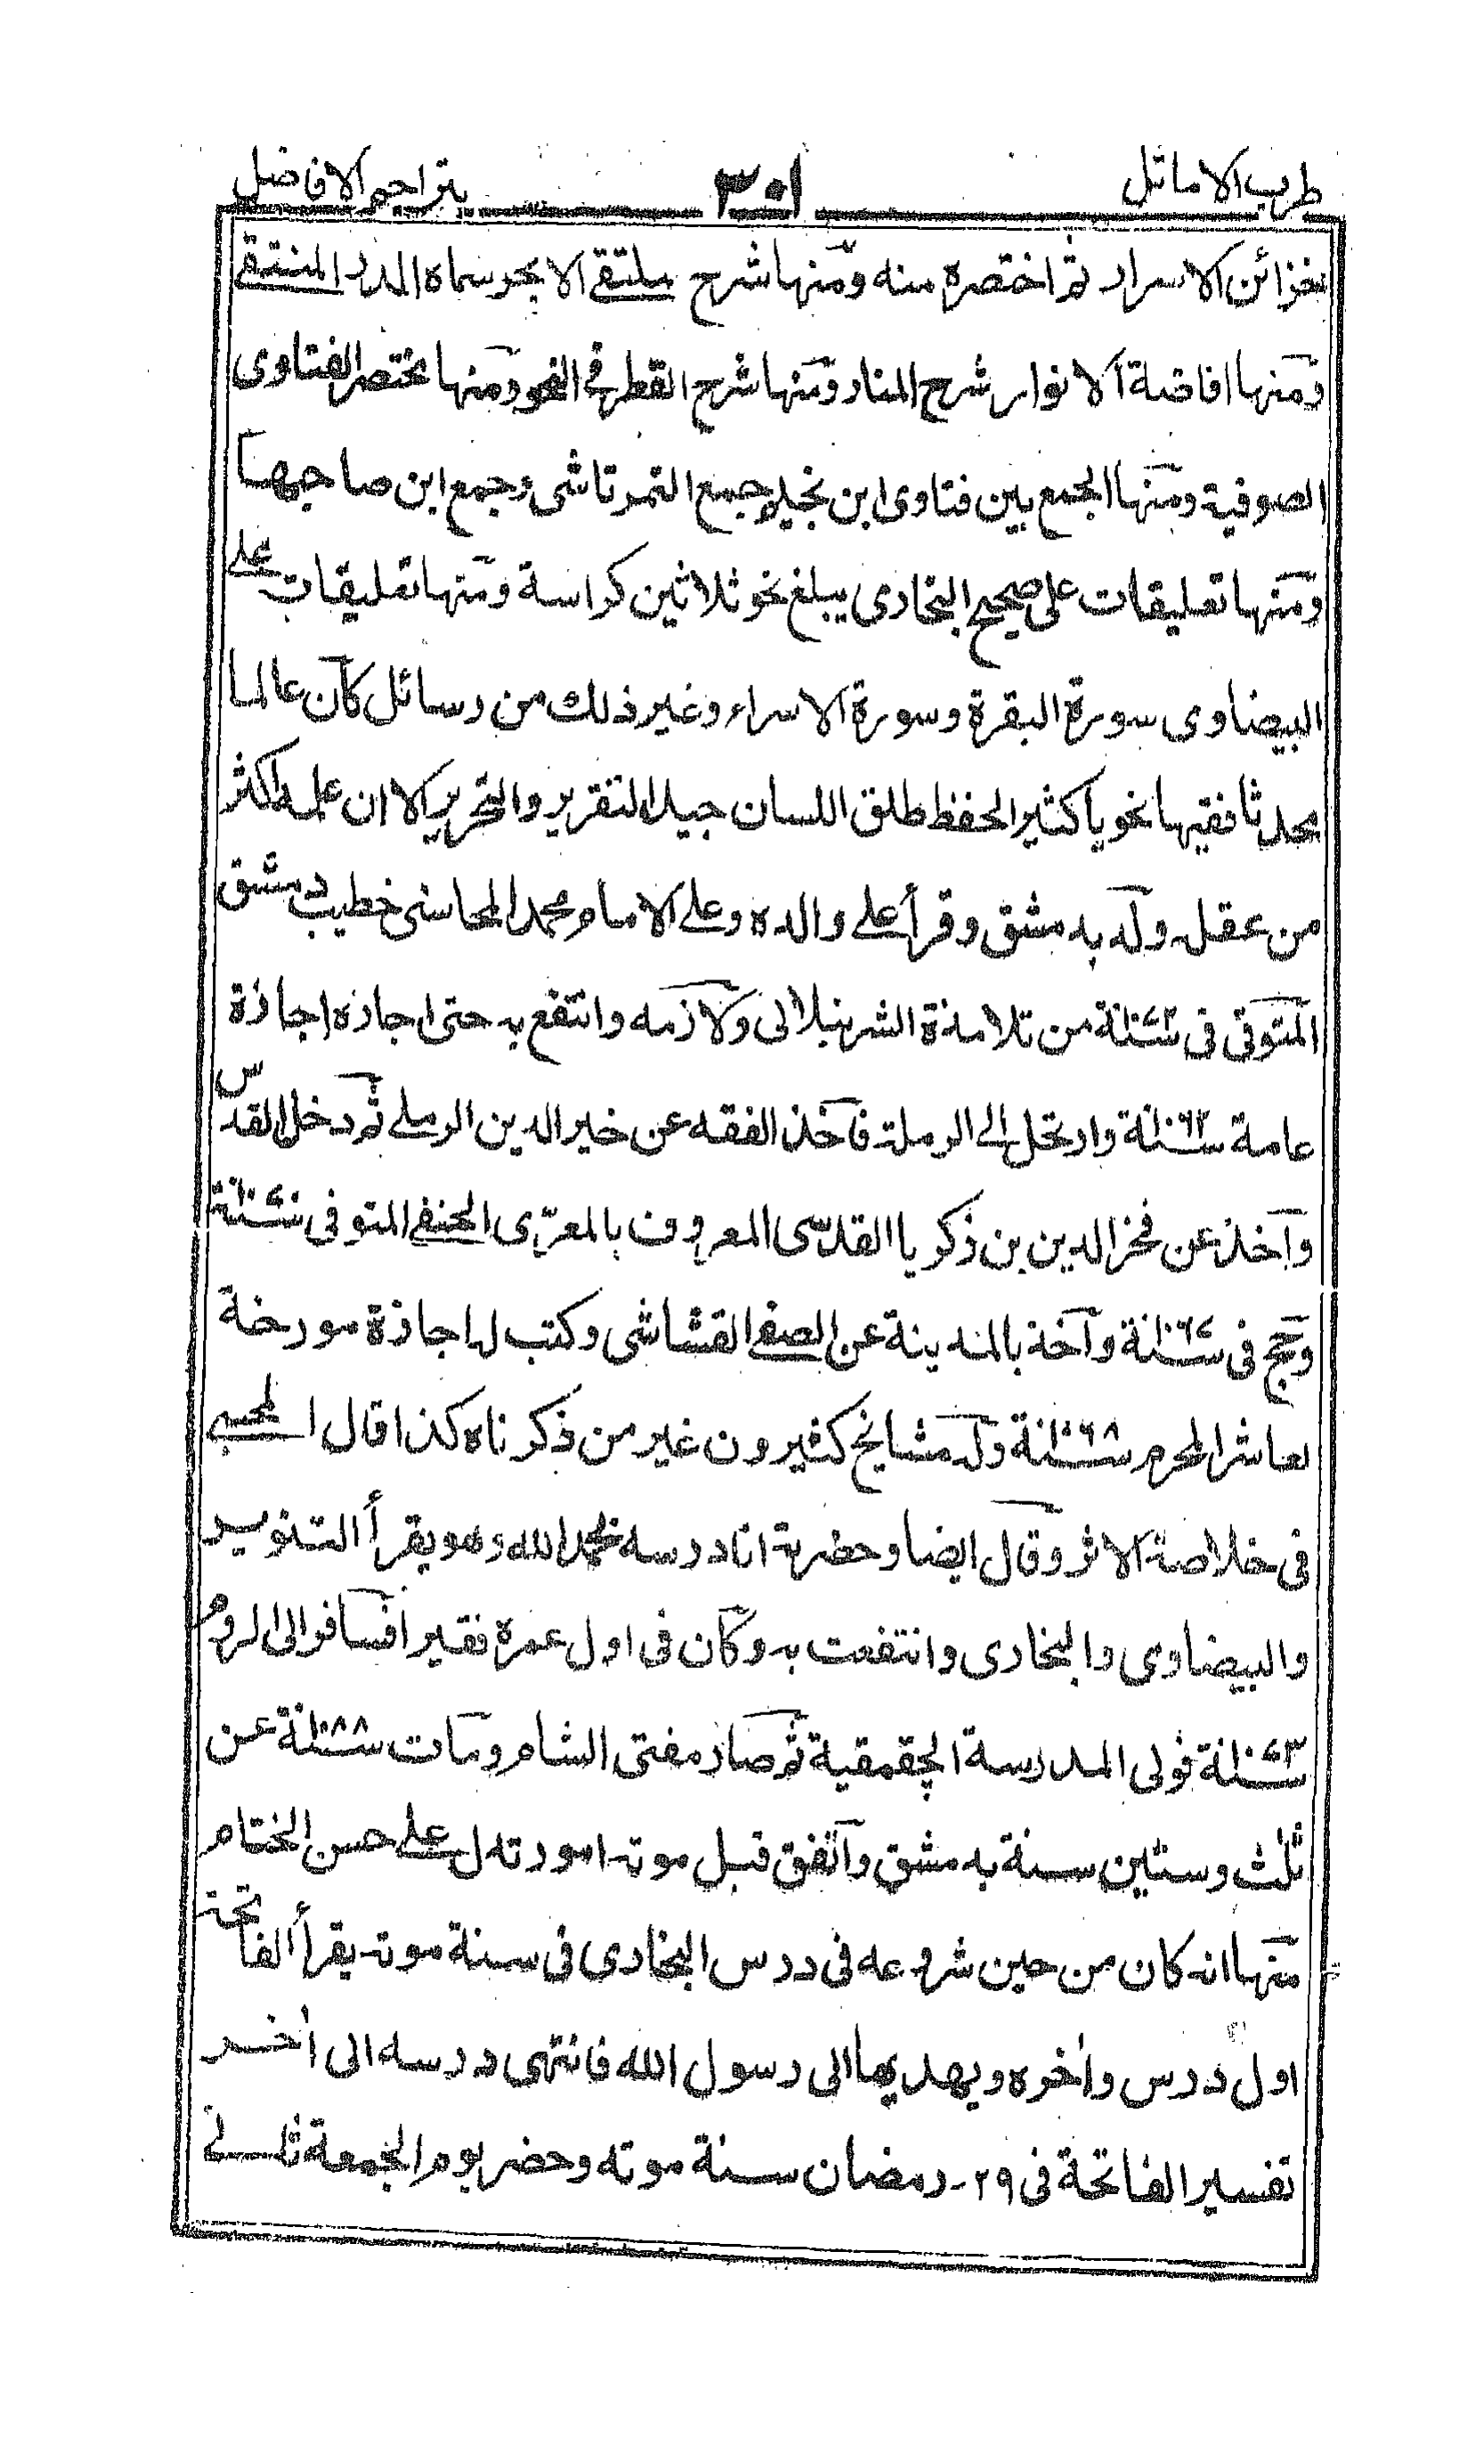 طرب الاماثل ٣٠١ بتراجم الافاضل
بخزائن الاسرار ثم اختصره منه ومنها شرح ملتقى الابحر سماه الدر المنتقى
ومنها افاضة الانوار شرح المنار ومنها شرح القطر في النحو ومنها مختصر الفتاوى
الصوفية ومنها الجمع بين فتاوى ابن نجيم جمع التمرتاشى وجمع ابن صاحبها
ومنها تعليقات على صحيح البخارى يبلغ نحو ثلاثين كراسة ومنها تعليقات على
البيضاوى سورة البقرة وسورة الاسراء وغير ذلك من رسائل كان عالما
محدثا فقيها نحويا كثير الحفظ طلق اللسان جيد التقرير والتحرير الا ان علمه اكثر
من عقله ولد بدمشق وقرأ على والده وعلى الامام محمد المحاسنى خطيب دمشق
المتوفى فى سنة ١٠٧٢ من تلامذة الشرنبلالى ولازمه وانتفع به حتى اجازه اجازة
عامة سنة ١٠٦٢ وارتحل الى الرملة فاخذ الفقه عن خير الدين الرملى ثم دخل القدس
واخذ عن فخر الدين بن زكريا القدسى المعروف بالمعرّى الحنفى المتوفى سنة ١٠٧٠
وحج فى سنة ١٠٦٧ واخذ بالمدينة عن الصفى القشاشى وكتب له اجازة مورخة
بعاشر المحرم سنة ١٠٦٨ وله مشايخ كثيرون غير من ذكرناه كذا قال المحبى
فى خلاصة الاثر وقال ايضا وحضرته انا درسه بحمد الله وهو يقرأ التنوير
والبيضاوى والبخارى وانتفعت به وكان فى اول عمره فقيرا فسافر الى الروم
سنة ١٠٧٣ فولى المدرسة الچقمقية ثم صار مفتى الشام ومات سنة ١٠٨٨ عن
ثلث وستين سنة بدمشق واتفق قبل موته امور تدل على حسن الختام
منها انه كان من حين شروعه فى درس البخارى فى سنة موته يقرأ الفاتحة
اول درس واخره ويهديها الى رسول الله فانتهى درسه الى اخر
تفسير الفاتحة فى ٢٩- رمضان سنة موته وحضر يوم الجمعة ثانى